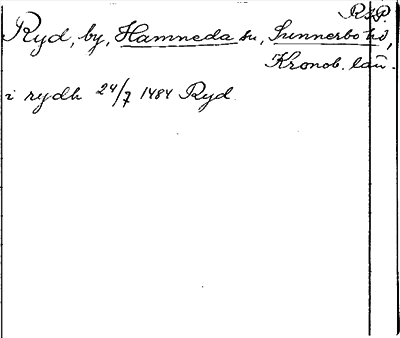 RAP.
Ryd, by, Hamneda sn, Sunnerbo hd,
Kronob. län.
i rydh 24/7 1484 Ryd